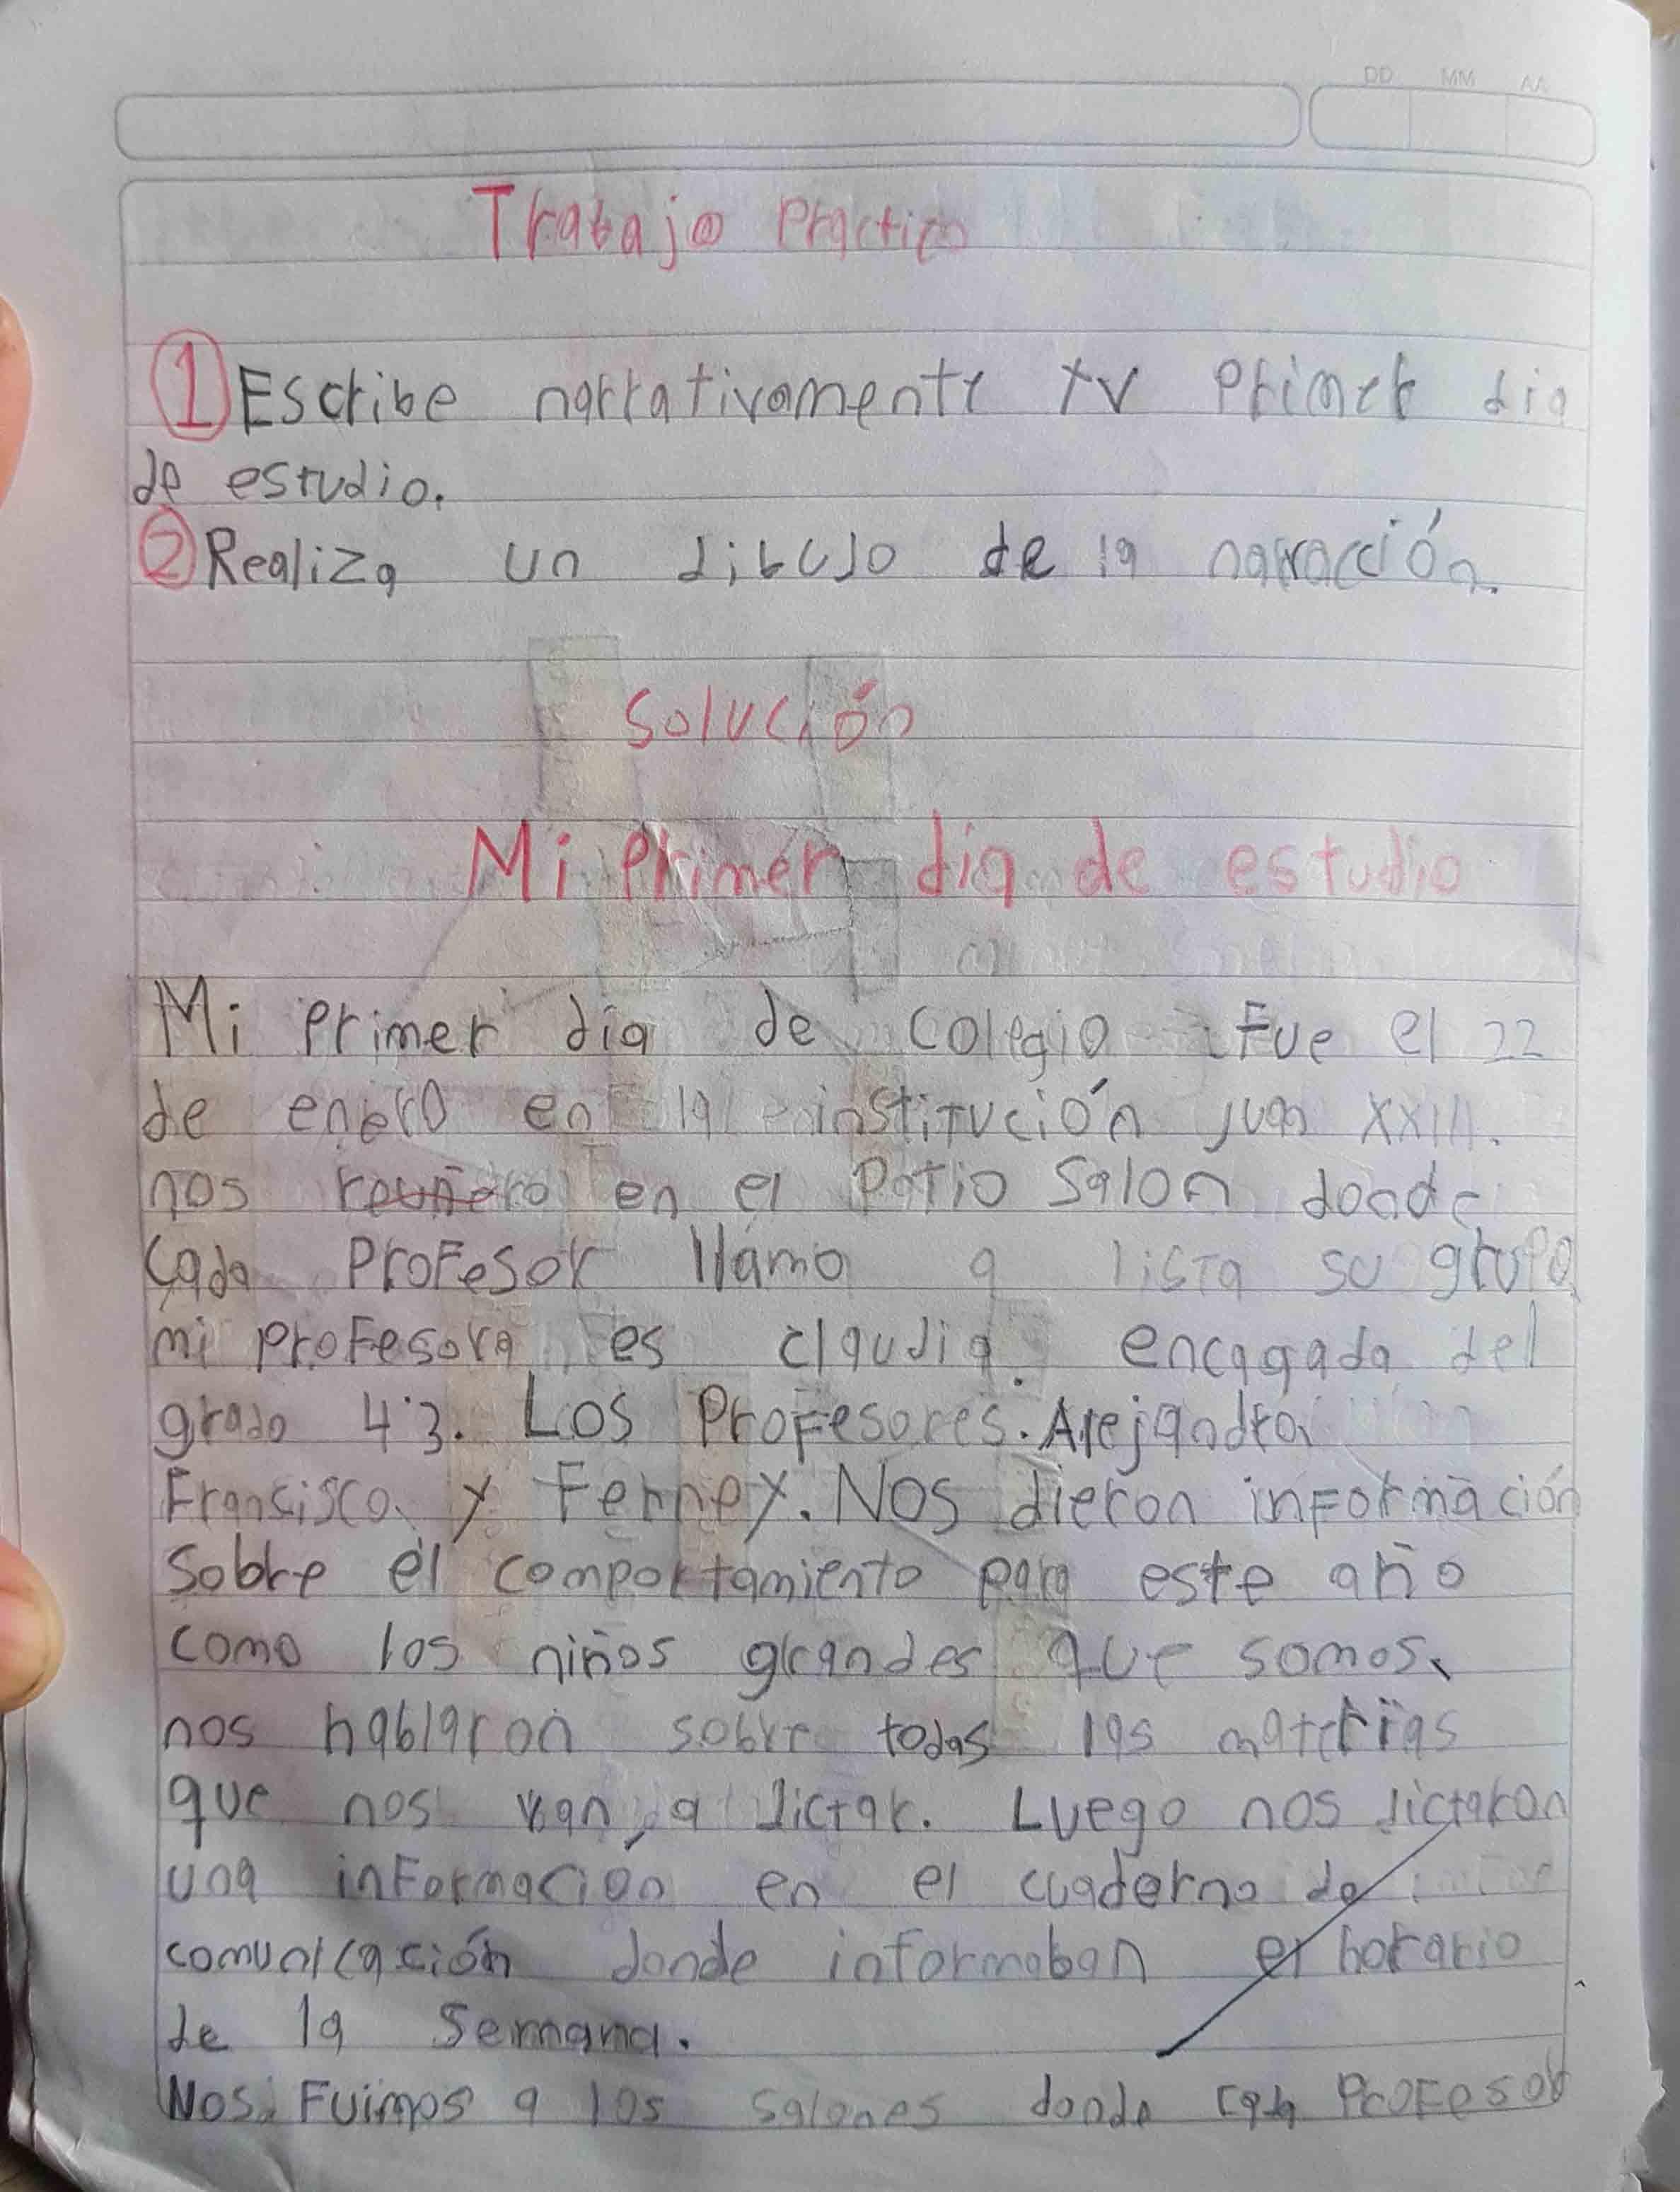 DD MM AA
Trabajo Practico
1 Escribe narrativamente tu Primer dia
de estudio.
2 Realiza un dibujo de la narracción.
Solución
Mi Primer dia de estudio
Mi Primer dia de colegio Fue el 22
de enero en la institución juan XXIII.
nos reuñero en el Patio Salon donde
cada Profesor llamo a lista su grupo
mi profesora es claudia. encagada del
grado 4°3. Los Profesores. Alejandra
Francisco y Ferney. Nos dieron información
Sobre el comportamiento para este año
como los niños grandes que somos,
nos hablaron sobre todas las materias
que nos van a dictar. Luego nos dictaron
una información en el cuaderno de
comunicación donde informaban el horario
de la Semana.
Nos Fuimos a los salones donde cada Profesor